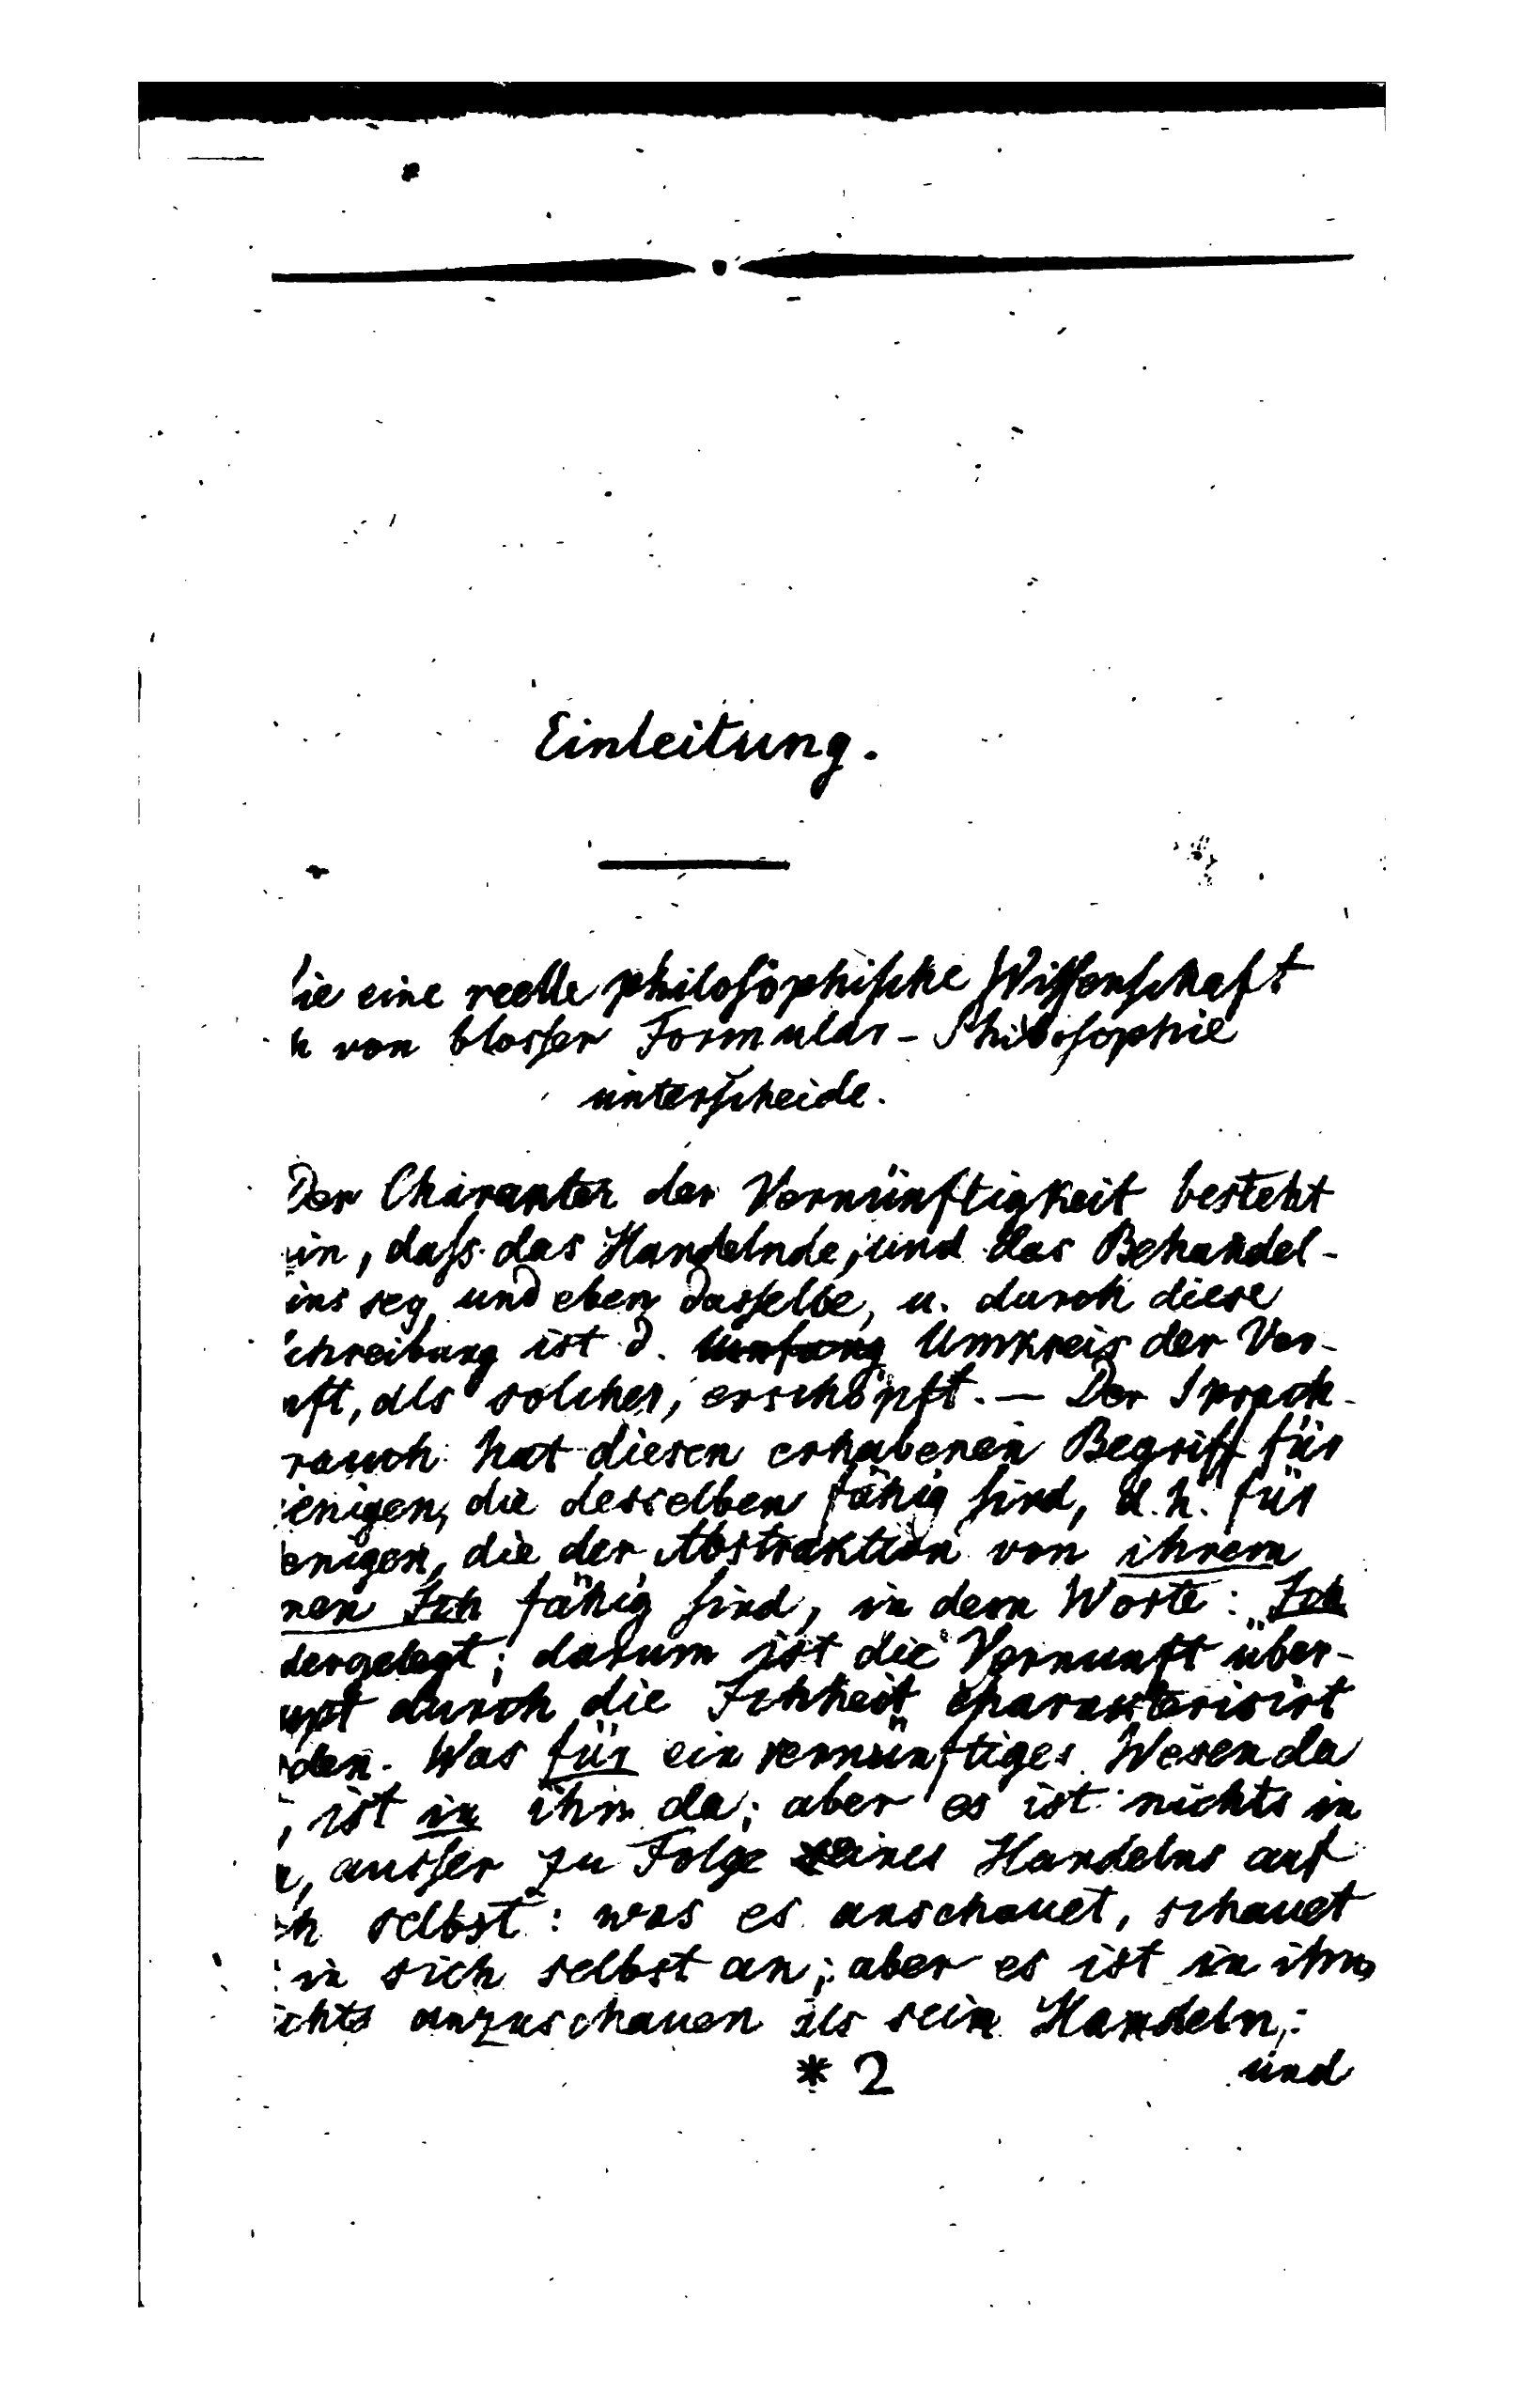 Einleitung.
ie eine reelle philosophische Wissenschaft
h von blosser Formular-Philosophie
unterscheide.
Der Charakter der Vernünftigkeit besteht
in, dass das Handelnde, und das Behandel-
ins sey und eben dasselbe, u. durch diese
chreibung ist d. Umfang Umkreis der Ver-
nft, als solcher, erschöpft. — Der Sprach-
rauch hat diesen erhabenen Begriff für
jenigen, die desselben fähig sind, d. h. für
jenigen, die der Abstraktion von ihrem
nen Ich fähig sind, in dem Worte: Ich
dergelegt; darum ist die Vernunft über-
upt durch die Ichheit charakterisirt
den. Was für ein vernünftiges Wesen da
, ist in ihm da; aber es ist nichts in
, ausser zu Folge seines Handelns auf
ch selbst: was es anschauet, schauet
in sich selbst an; aber es ist in ihm
ichts anzuschauen als sein Handeln:
* 2 und